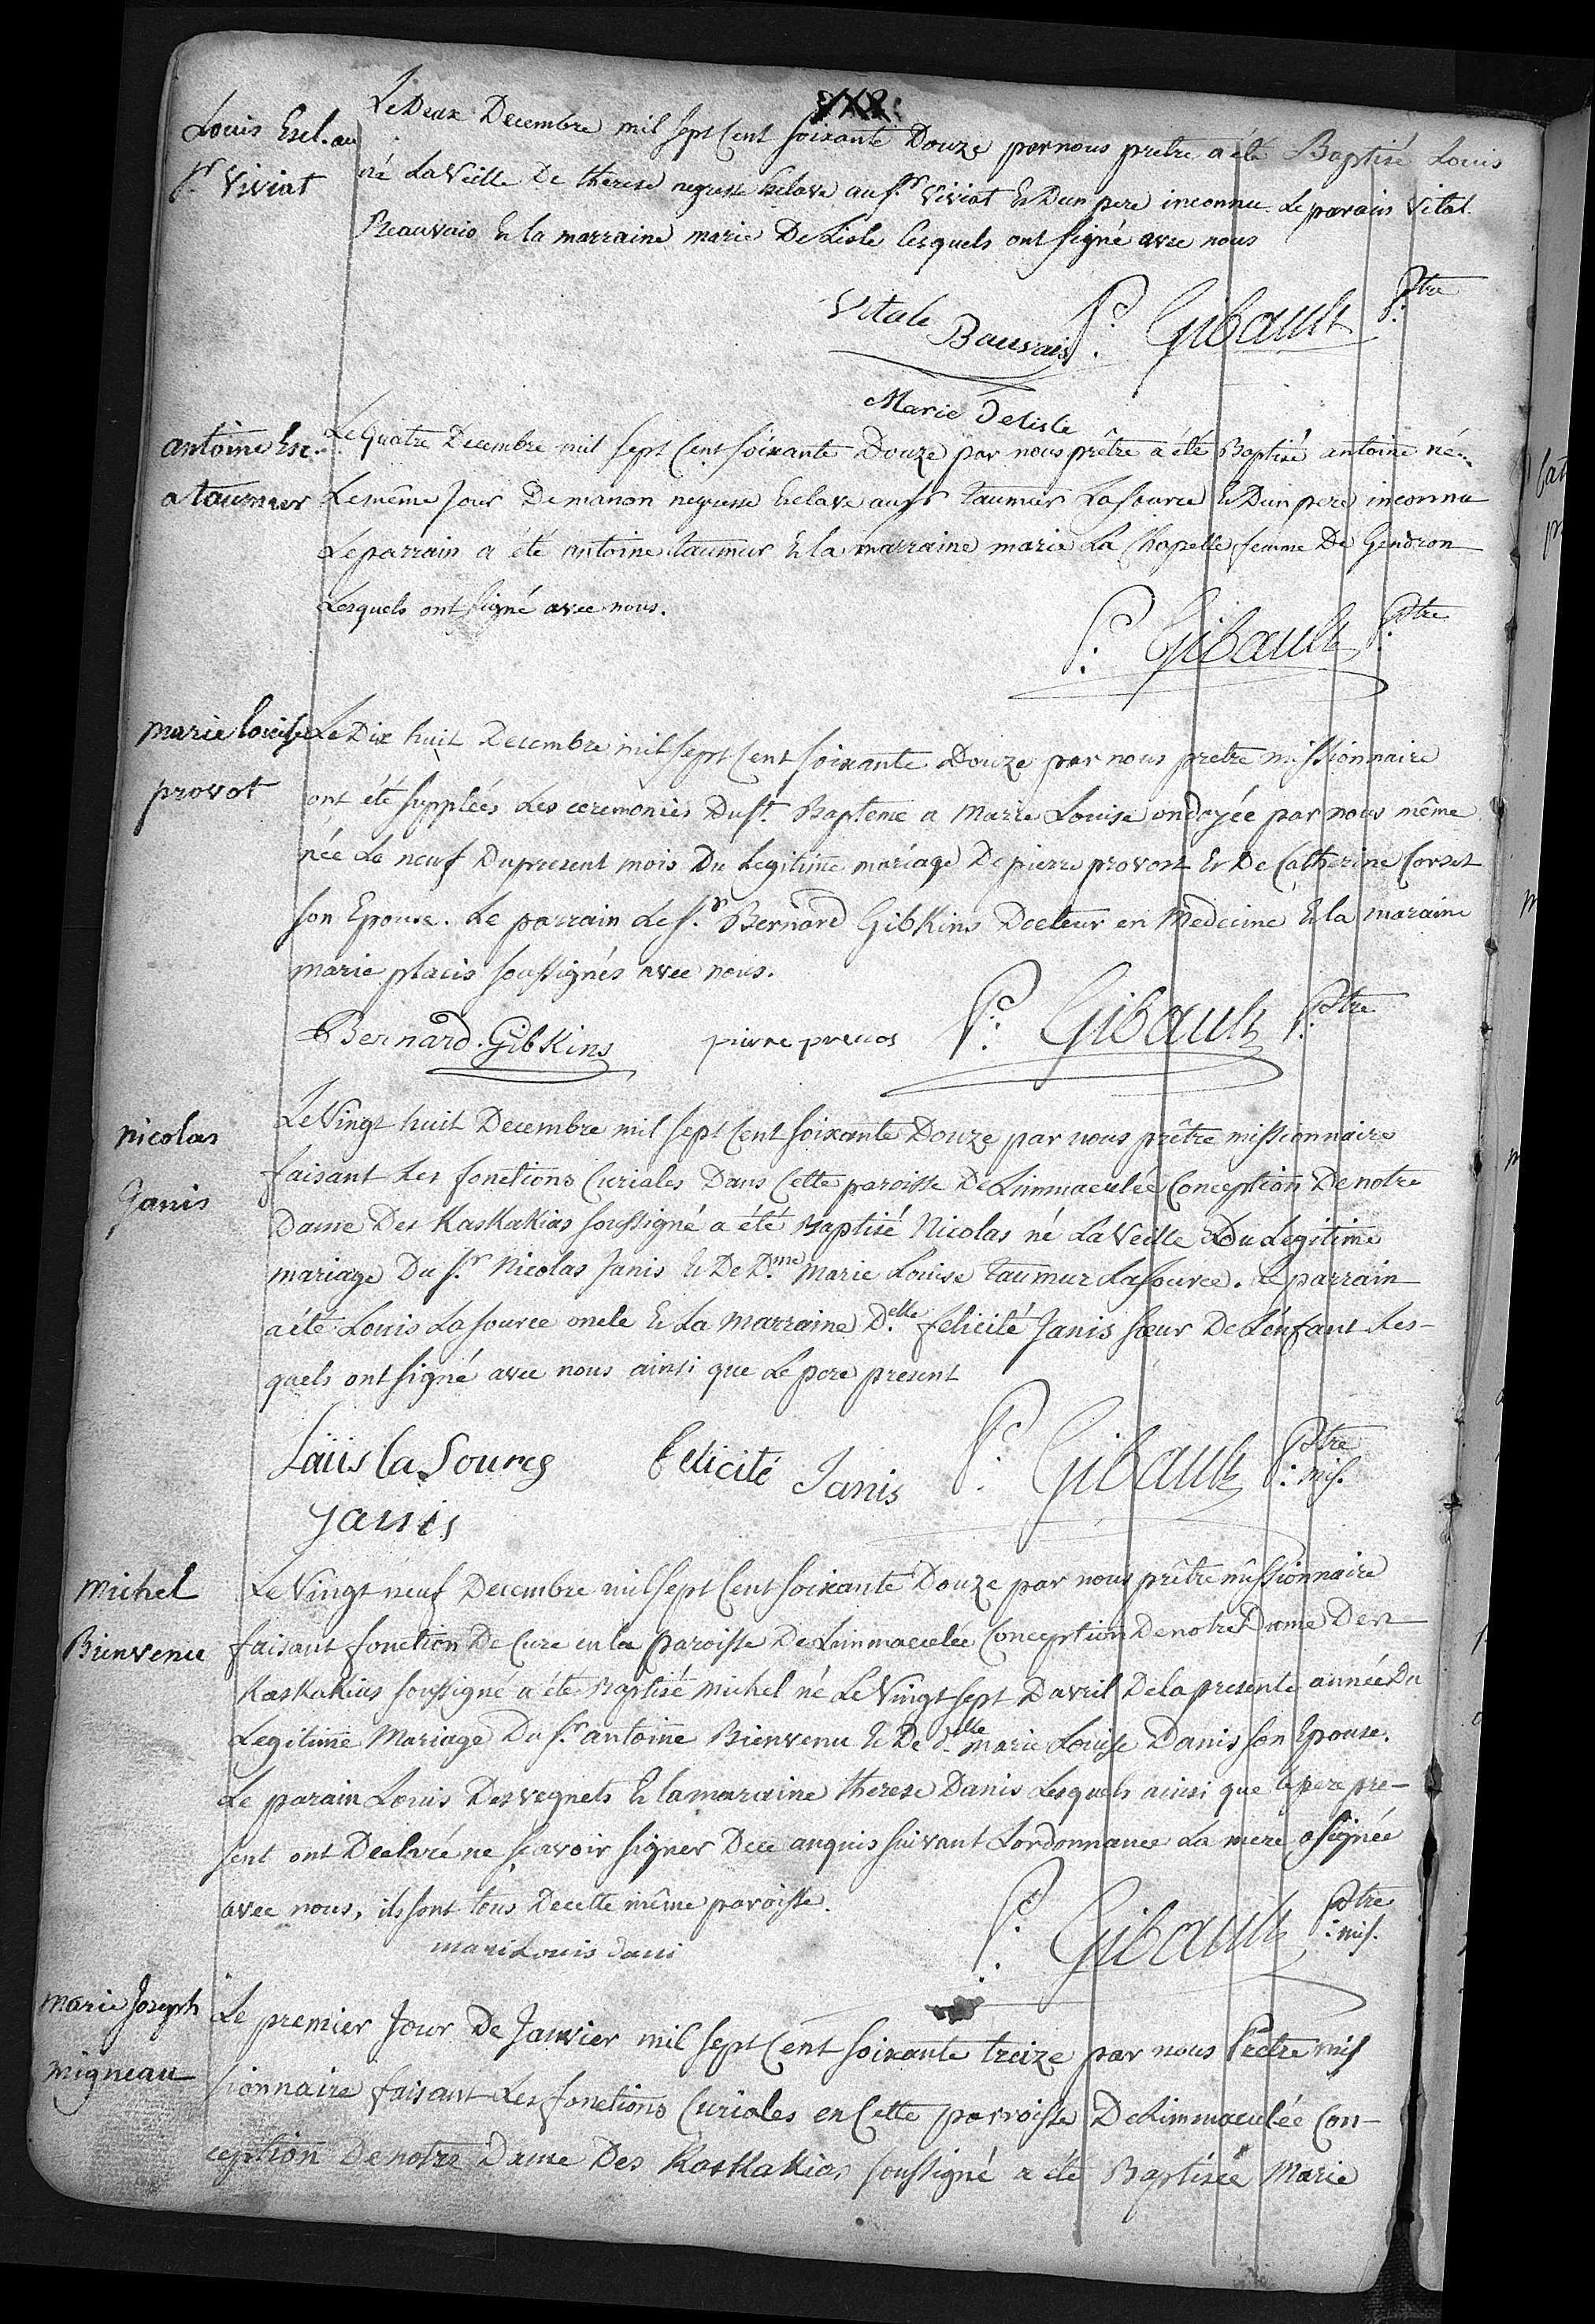 Louis Escl. au
Sr. Viviat
Le Deux Decembre mil sept Cent soixante Douze par nous pretre a été Baptisé Louis
né La Veille De therese negresse Esclave au Sr. Viviat Et D'un pere inconnu. Le parain Vital
Beauvais Et la marraine marie De Lisle lesquels ont signé avec nous
Vitale Bauvais P. Gibault Ptre
Marie Delisle
antoine Esc.
a taumur
Le Quatre Decembre mil sept Cent soixante Douze par nous prêtre a été Baptisé antoine né
Le même Jour De manon negresse Esclave au Sr taumur La source Et D'un pere inconnu
Le parrain a été antoine taumur Et la marraine marie La Chapelle femme De Gendron
Lesquels ont signé avec nous.
P. Gibault Ptre
marie louise
provot
Le Dix huit Decembre mil sept Cent soixante Douze par nous pretre missionnaire
ont été suppléés Les ceremonies Du St. Bapteme a Marie Louise ondoyée par nous même
née Le neuf Du present mois Du Legitime mariage De pierre provost Et De Catherine Corset
son Epouse. Le parrain Le Sr. Bernard GibKins Docteur en Medecine Et la maraine
marie placis soussignés avec nous.
Bernard. GibKins pierre prevos P. Gibault Ptre
nicolas
Janis
Le Vingt huit Decembre mil sept Cent soixante Douze par nous prêtre missionnaire
faisant Les fonctions Curiales Dans Cette paroisse De L'immaculée Conception De notre
Dame Des Kaskakias soussigné a été Baptisé Nicolas né La Veille Du Legitime
mariage Du Sr. Nicolas Janis Et De Dme. Marie Louise taumur La source. Le parrain
a été Louis La source oncle Et La Marraine Delle. felicité Janis sœur De L'enfant Les-
quels ont signé avec nous ainsi que Le pere present
Laüis la Source felicité Janis P. Gibault Ptre mis.
Janis
Michel
Bienvenu
Le Vingt neuf Decembre mil sept Cent soixante Douze par nous prêtre missionnaire
faisant fonction De Cure en la paroisse De L'immaculée Conception De notre Dame Des
Kaskakias soussigné a été Baptisé michel né Le Vingt sept D'avril De la presente année Du
Legitime Mariage Du Sr. antoine Bienvenu Et De delle. marie Louise Danis son Epouse.
Le parain Louis Desvegnets Et la maraine therese Danis Lesquels ainsi que le pere pre-
sent ont Declaré ne sçavoir signer De ce anquis suivant L'ordonnance La mere a signée
avec nous, ils sont tous De cette même paroisse.
mari Louis dani P. Gibault Ptre mis.
Marie Joseph
migneau
Le premier Jour De Janvier mil sept Cent soixante treize par nous Prêtre mis
sionnaire faisant Les fonctions Curiales en Cette parroisse De L'immaculée Con-
ception De notre Dame Des KasKaKias soussigné a été Baptisée Marie